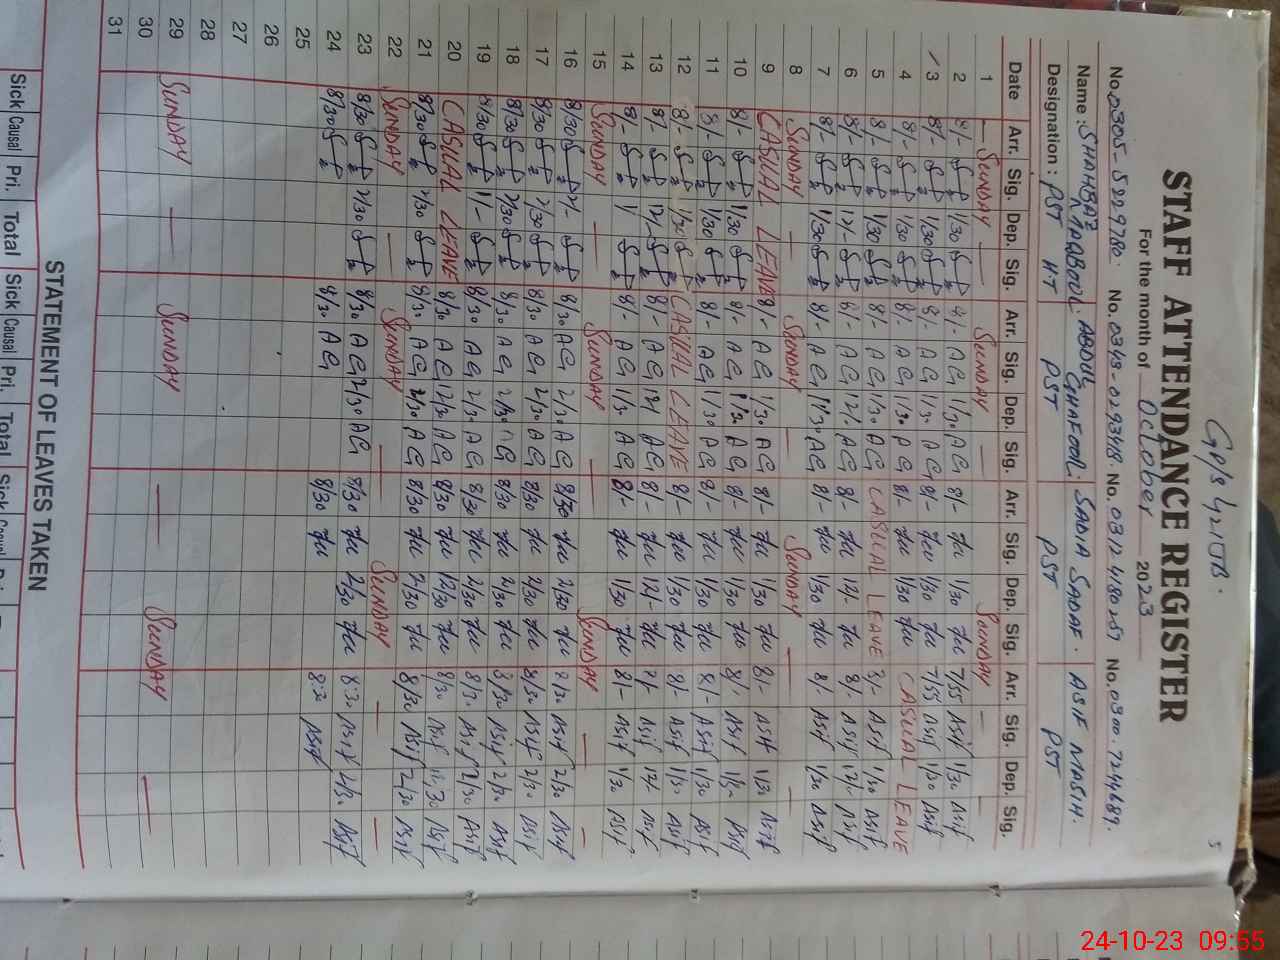 GP/S 421TB.
5
STAFF ATTENDANCE REGISTER
For the month of October 2023
No. 0305-5229780. No. 0343-0293418. No. 0312 4180251 No. 0300.7244689.
Name: SHAHBAZ MAQBOOL. ABDUL GHAFOOR. SADIA SADAF. ASIF MASIH.
Designation: PST HT PST PST PST
Date Arr. Sig. Dep. Sig. Arr. Sig. Dep. Sig. Arr. Sig. Dep. Sig. Arr. Sig. Dep. Sig.
1 — SUNDAY — SUNDAY — SUNDAY —
2 8/- 1/30 8/- AG 1/30 AG 8/- 1/30 7/55 Asif 1/30 Asif
3 8/- 1/30 8/- AG 1/30 AG 8/- 1/30 7/55 Asif 1/30 Asif
4 8/- 1/30 8/- AG 1/30 AG 8/- 1/30 CASUAL LEAVE
5 8/- 1/30 8/- AG 1/30 AG CASUAL LEAVE 8/- Asif 1/30 Asif
6 8/- 12/- 8/- AG 12/- AG 8/- 12/- 8/- Asif 12/- Asif
7 8/- 1/30 8/- AG 1/30 AG 8/- 1/30 8/- Asif 1/30 Asif
8 SUNDAY — SUNDAY — SUNDAY — —
9 CASUAL LEAVE 8/- AG 1/30 AG 8/- 1/30 8/- Asif 1/30 Asif
10 8/- 1/30 8/- AG 1/30 AG 8/- 1/30 8/- Asif 1/30 Asif
11 8/- 1/30 8/- AG 1/30 AG 8/- 1/30 8/- Asif 1/30 Asif
12 8/- 1/30 CASUAL LEAVE 8/- 1/30 8/- Asif 1/30 Asif
13 8/- 12/- 8/- AG 12/ AG 8/- 12/- Asif 12/- Asif
14 8/- 1/ 8/- AG 1/30 AG 8/- 1/30 8/- Asif 1/30 Asif
15 SUNDAY — SUNDAY — SUNDAY — —
16 8/30 2/- 8/30 AG 2/30 AG 8/30 2/30 8/30 Asif 2/30 Asif
17 8/30 2/30 8/30 AG 2/30 AG 8/30 2/30 8/30 Asif 2/30 Asif
18 8/30 2/30 8/30 AG 2/30 AG 8/30 2/30 8/30 Asif 2/30 Asif
19 8/30 8/30 AG 2/30 AG 8/30 2/30 8/30 Asif 2/30 Asif
20 CASUAL LEAVE 8/30 AG 12/30 AG 8/30 12/30 8/30 Asif 12/30 Asif
21 8/30 2/30 8/30 AG 2/30 AG 8/30 2/30 8/30 Asif 2/30 Asif
22 SUNDAY — SUNDAY — SUNDAY — —
23 8/30 2/30 8/30 AG 2/30 AG 8/30 2/30 8:30 Asif 2/30 Asif
24 8/30 8/30 AG 8/30 8:30 Asif
25
26
27
28
29 SUNDAY — SUNDAY — SUNDAY —
30
31
STATEMENT OF LEAVES TAKEN
Sick Causal Pri. Total Sick Causal Pri. Total Sick Causal
24-10-23 09:55